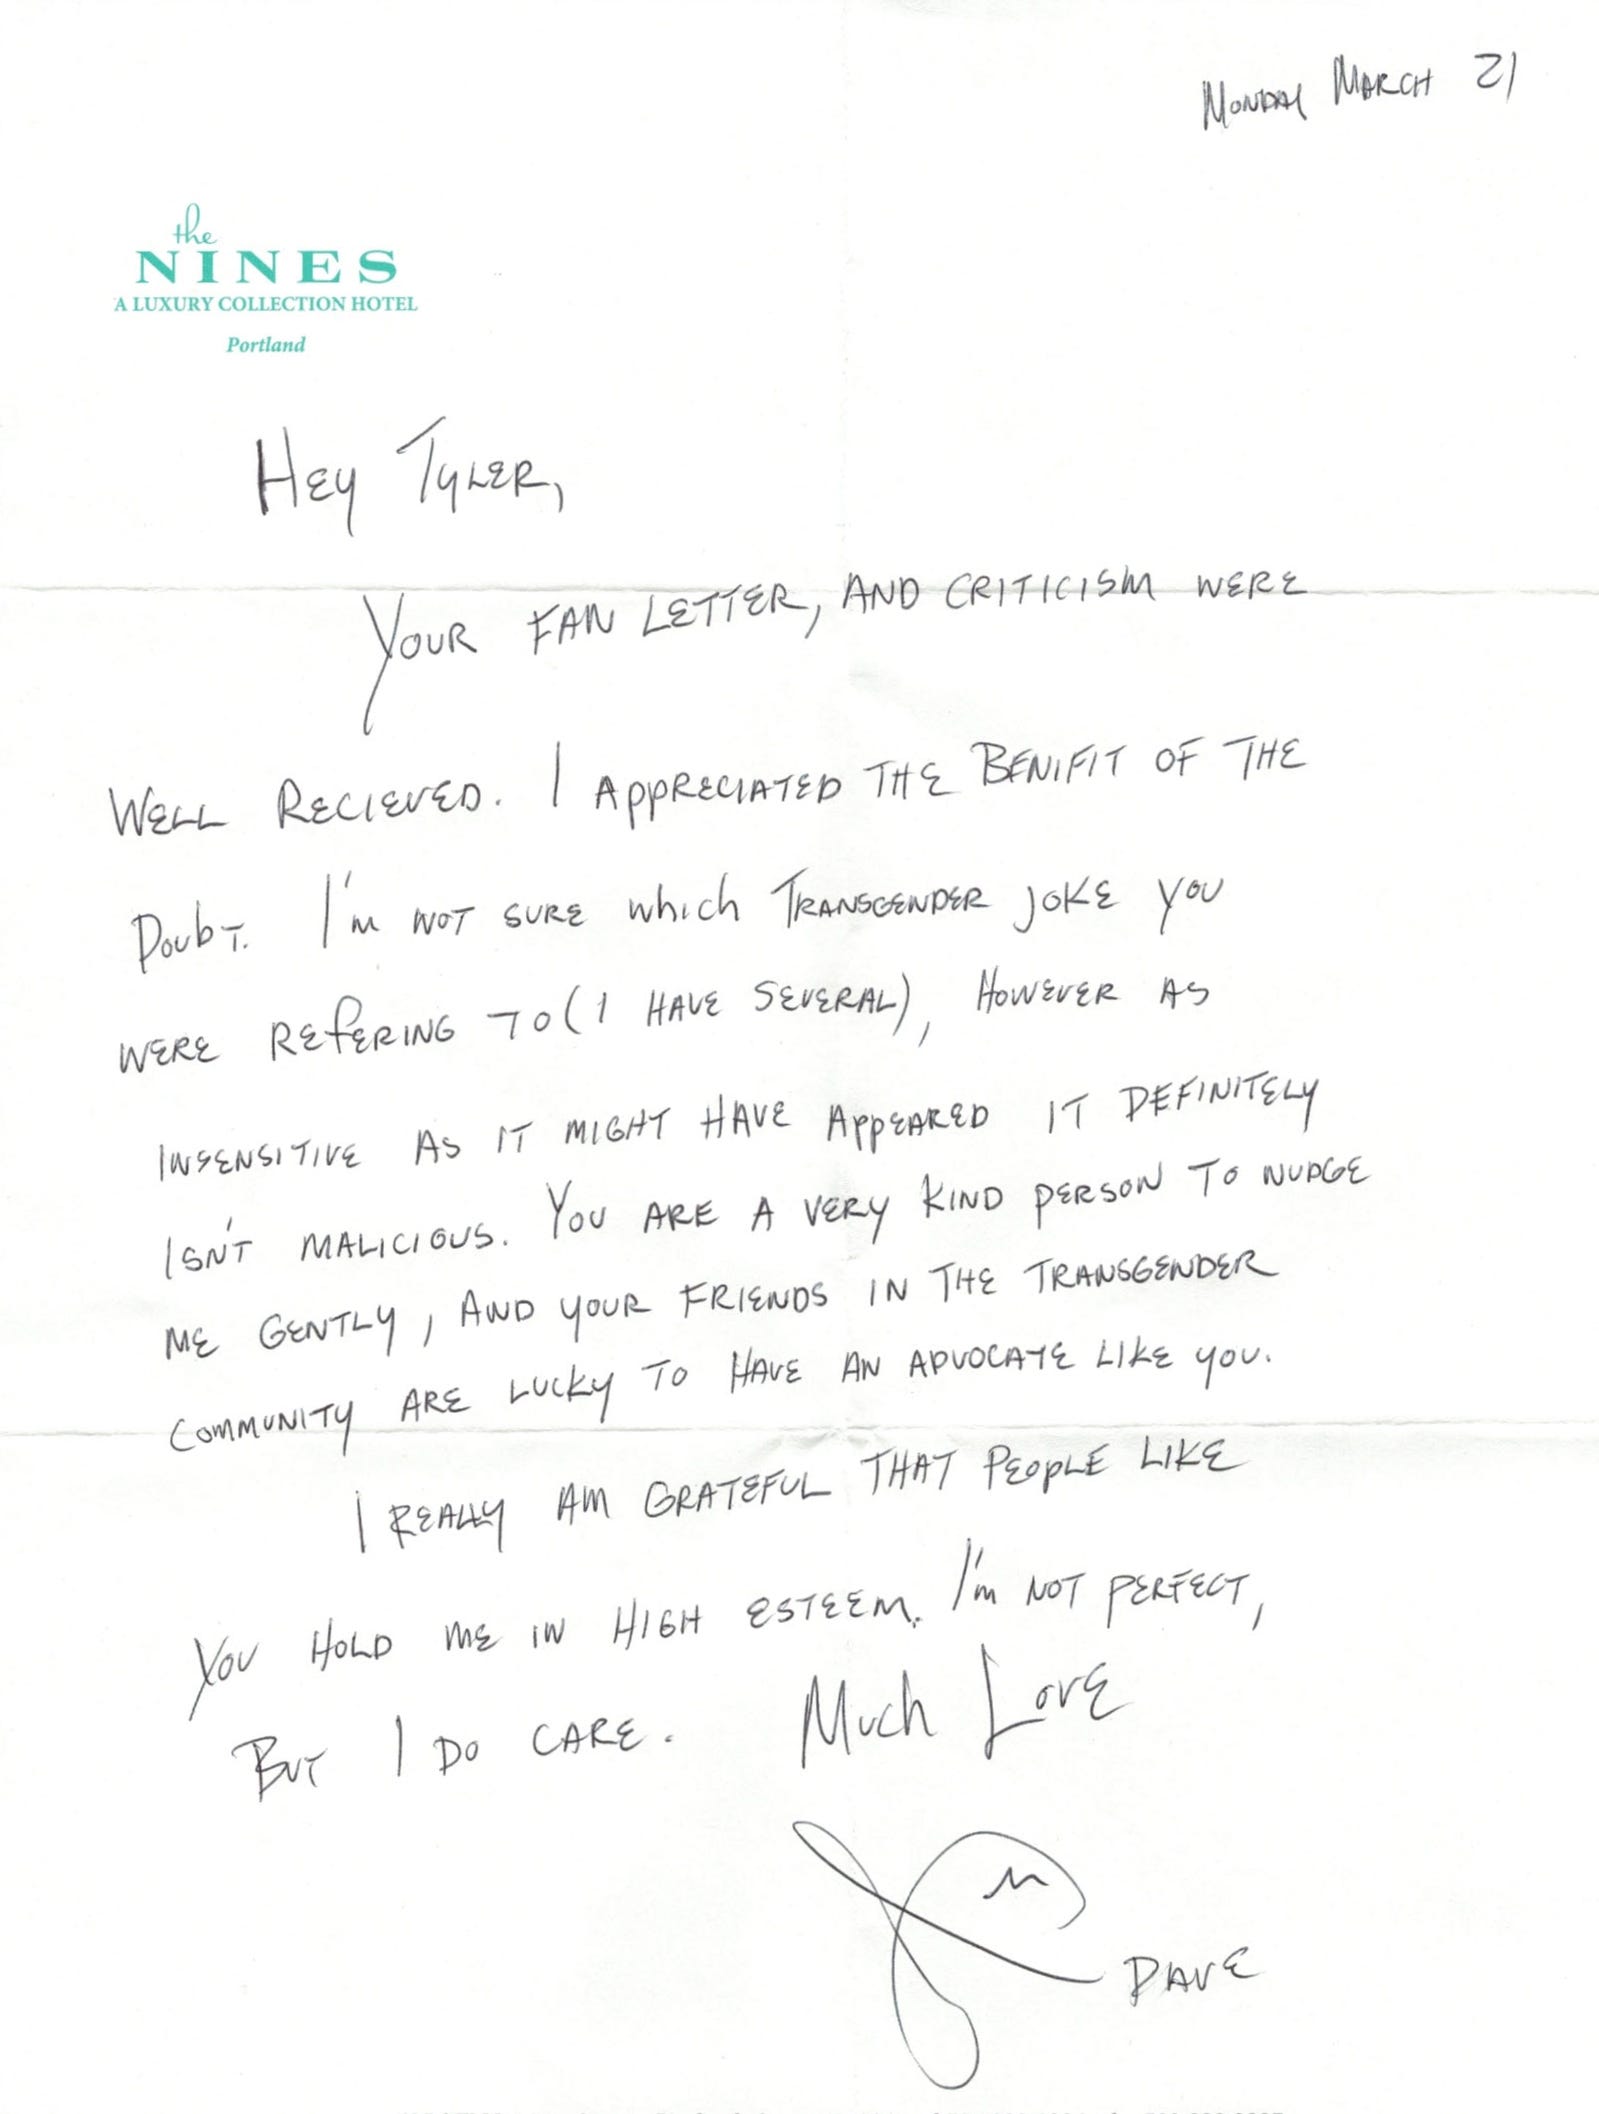 Monday March 21
the
NINES
A LUXURY COLLECTION HOTEL
Portland
Hey Tyler,
Your fan letter, and criticism were
well recieved. I appreciated the benifit of the
doubt. I'm not sure which transgender joke you
were refering to (I have several), however as
insensitive as it might have appeared it definitely
isn't malicious. You are a very kind person to nudge
me gently, and your friends in the transgender
community are lucky to have an advocate like you.
I really am grateful that people like
you hold me in high esteem. I'm not perfect,
But I do care. Much Love
Dave